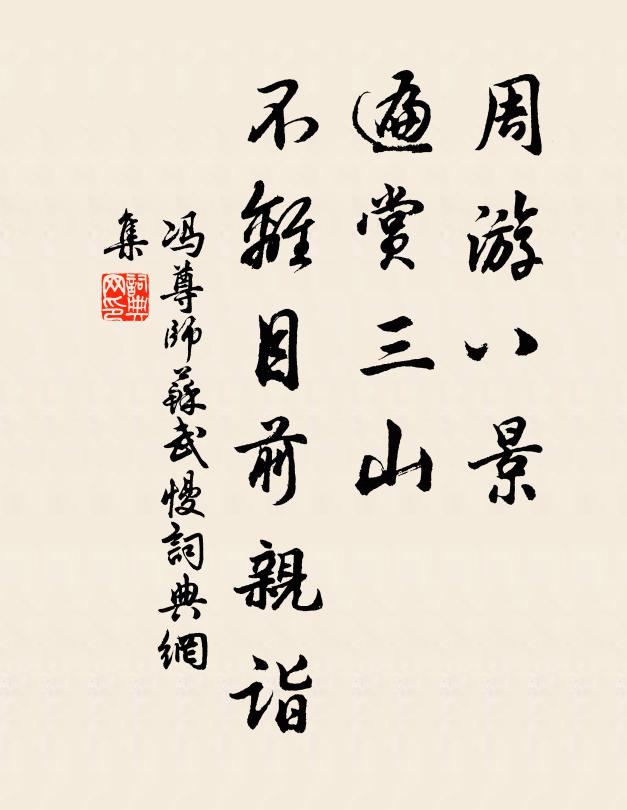 周游八景
遍賞三山
不離目前親詣
冯尊師蘇武慢詞典網
集
詞典
网印